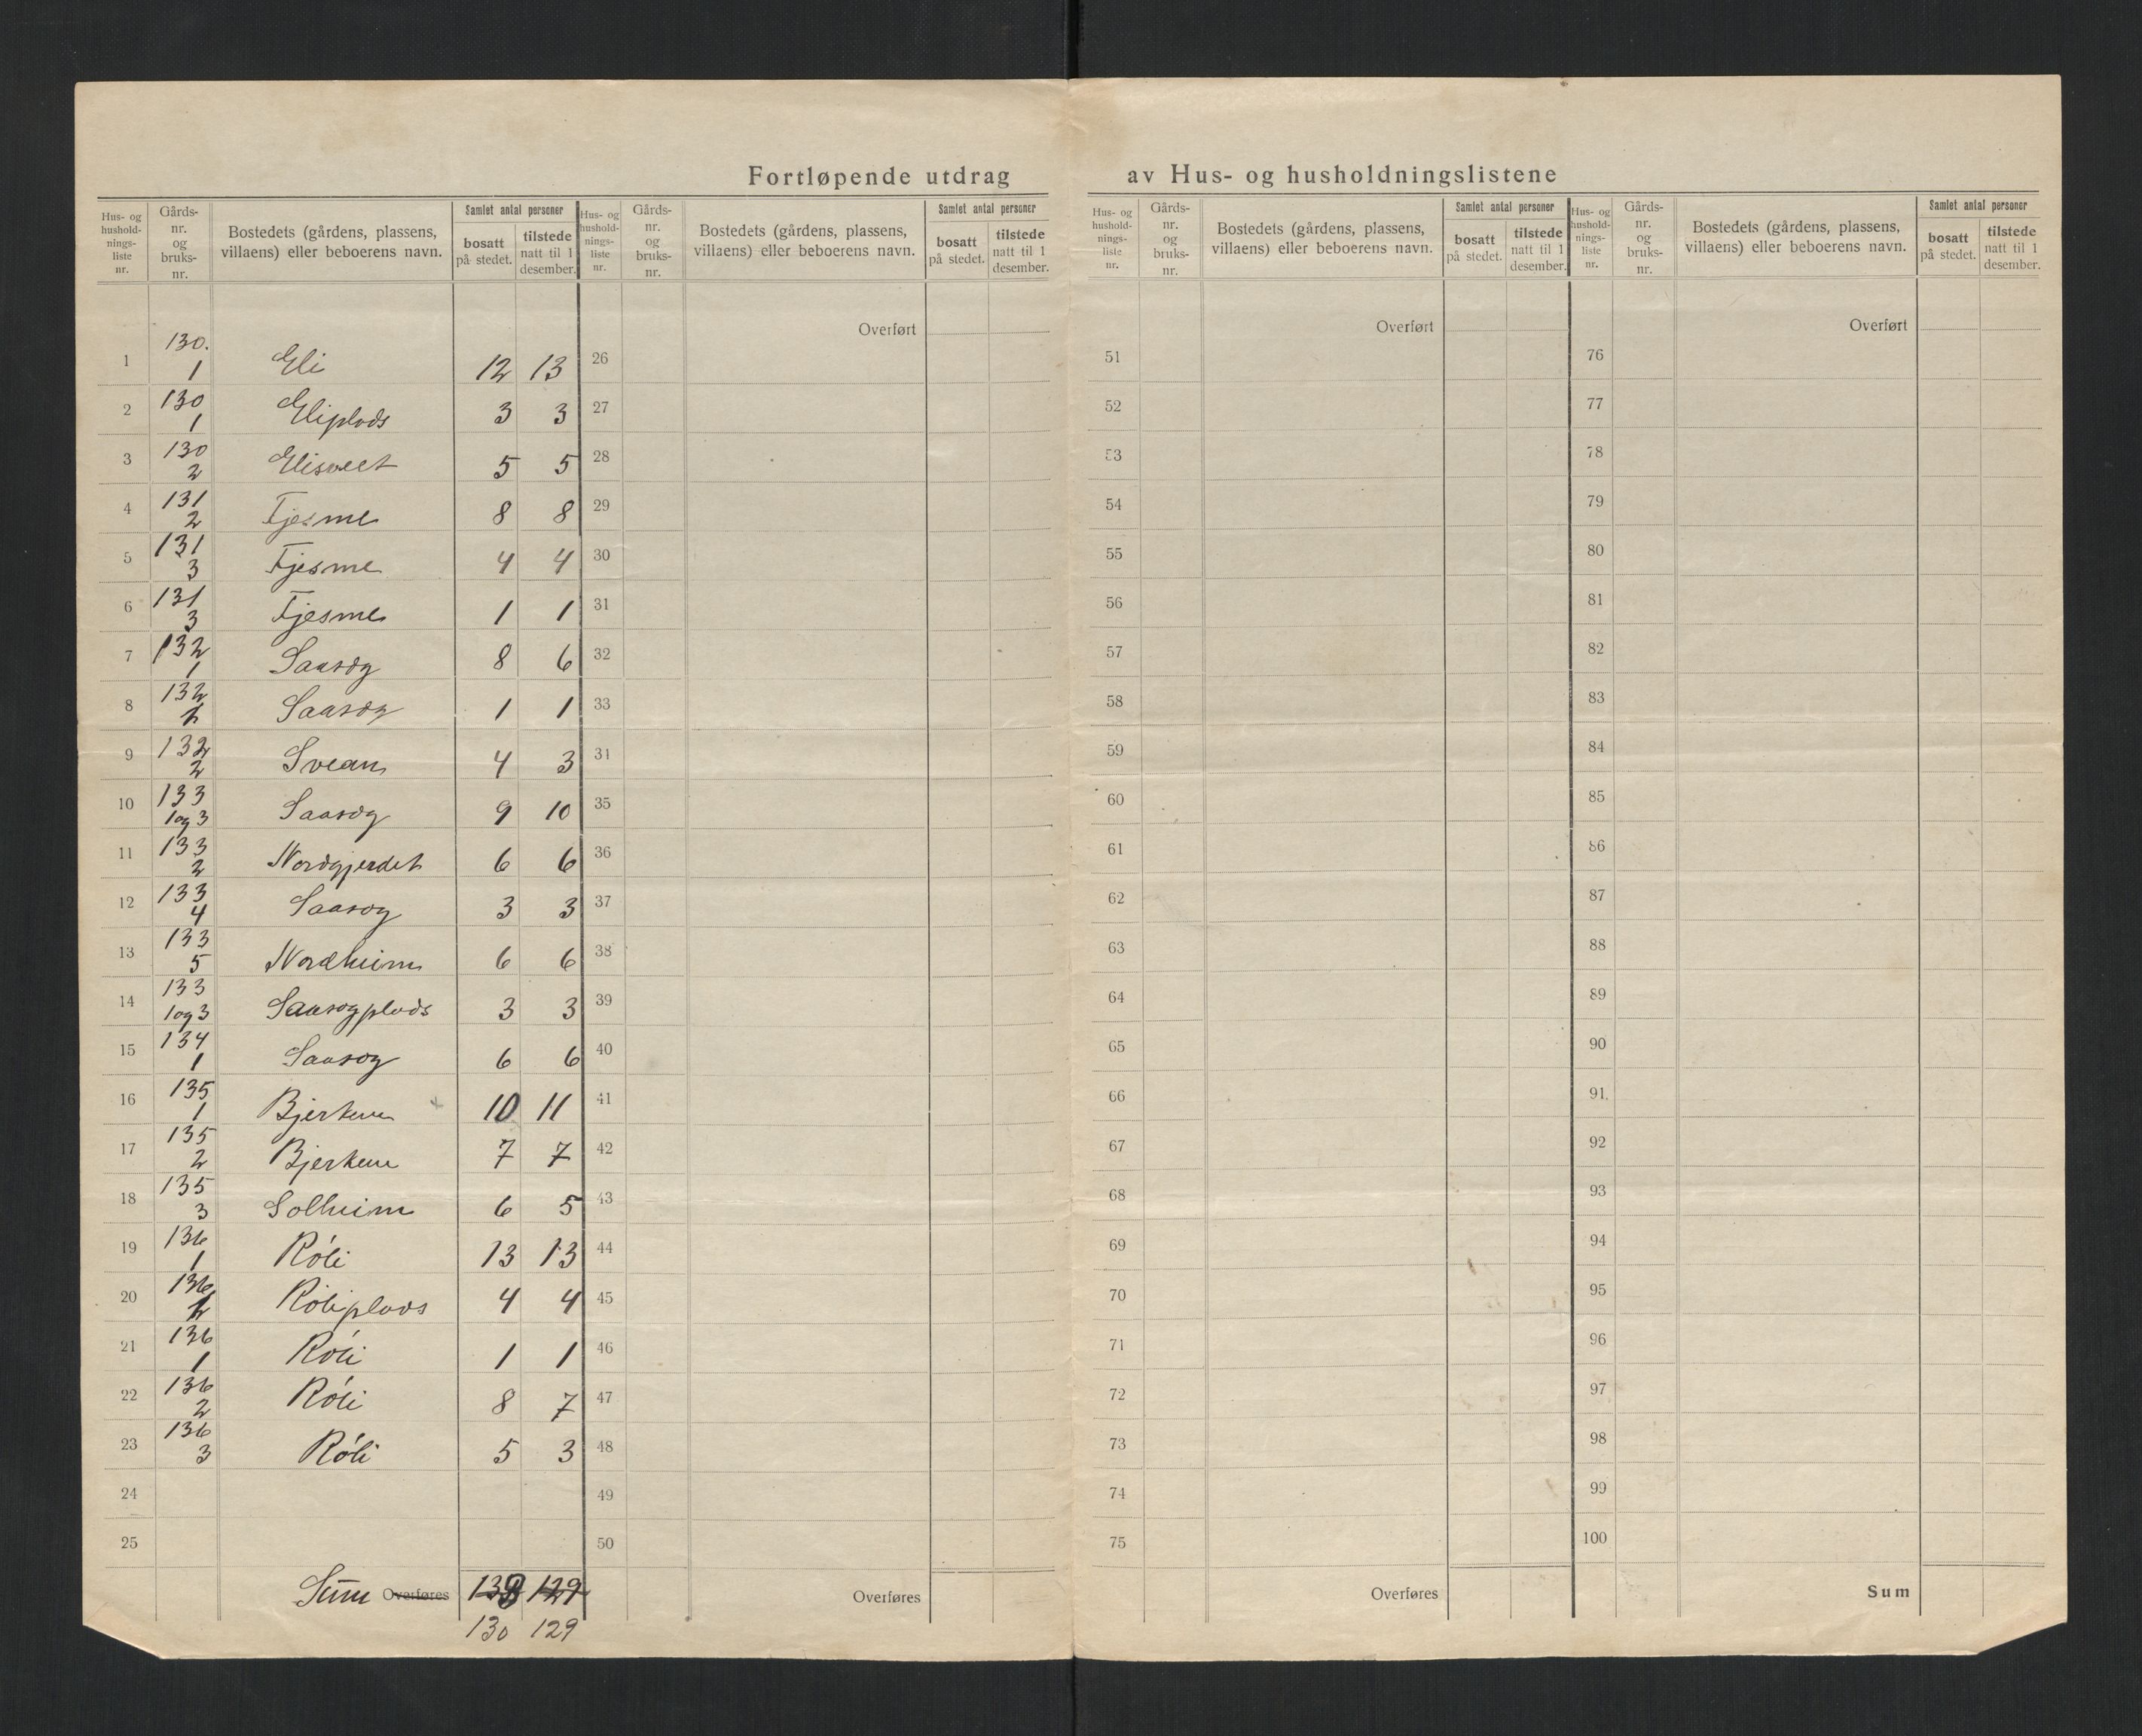 Fortløpende utdrag av Hus- og husholdningslistene
Hus- og hushold-nings-liste nr. Gårds-nr. og bruks-nr. Bostedets (gårdens, plassens, villaens) eller beboerens navn. Samlet antal personer bosatt på stedet. tilstede natt til 1 desember.
Hus- og hushold-nings-liste nr. Gårds-nr. og bruks-nr. Bostedets (gårdens, plassens, villaens) eller beboerens navn. Samlet antal personer bosatt på stedet. tilstede natt til 1 desember.
Hus- og hushold-nings-liste nr. Gårds-nr. og bruks-nr. Bostedets (gårdens, plassens, villaens) eller beboerens navn. Samlet antal personer bosatt på stedet. tilstede natt til 1 desember.
Hus- og hushold-nings-liste nr. Gårds-nr. og bruks-nr. Bostedets (gårdens, plassens, villaens) eller beboerens navn. Samlet antal personer bosatt på stedet. tilstede natt til 1 desember.
Overført Overført Overført
1 130. 1 Eli 12 13 26 51 76
2 130 1 Eliplads 3 3 27 52 77
3 130 2 Elisveet 5 5 28 53 78
4 131 2 Fjesme 8 8 29 54 79
5 131 3 Fjesme 4 4 30 55 80
6 131 3 Fjesme 1 1 31 56 81
7 132 1 Saasog 8 6 32 57 82
8 132 Saasog 1 1 33 58 83
9 132 2 Svean 4 3 31 59 84
10 133 1og3 Saasog 9 10 35 60 85
11 133 2 Nordgjerdet 6 6 36 61 86
12 133 4 Saasog 3 3 37 62 87
13 133 5 Nordheim 6 6 38 63 88
14 133 1og3 Saasogplads 3 3 39 64 89
15 134 1 Saasog 6 6 40 65 90
16 135 1 Bjerken 10 11 41 66 91
17 135 2 Bjerken 7 7 42 67 92
18 135 3 Solheim 6 5 43 68 93
19 136 1 Róli 13 13 44 69 94
20 136 Róliplads 4 4 45 70 95
21 136 1 Róli 1 1 46 71 96
22 136 2 Róli 8 7 47 72 97
23 136 3 Róli 5 3 48 73 98
24 49 74 99
25 50 75 100
Sum Overføres 129 Overføres Overføres Sum
130 129